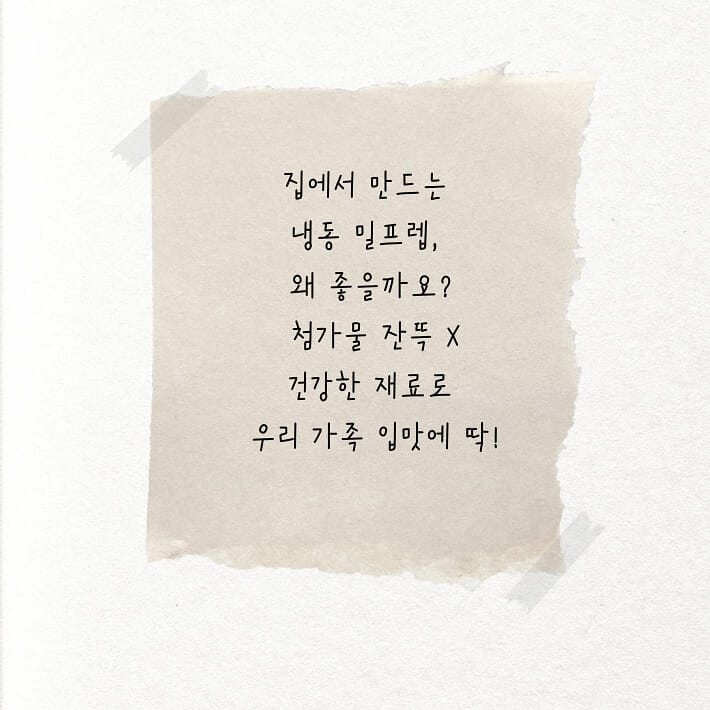 집에서 만드는
냉동 밀프렙,
왜 좋을까요?
첨가물 잔뜩 X
건강한 재료로
우리 가족 입맛에 딱!